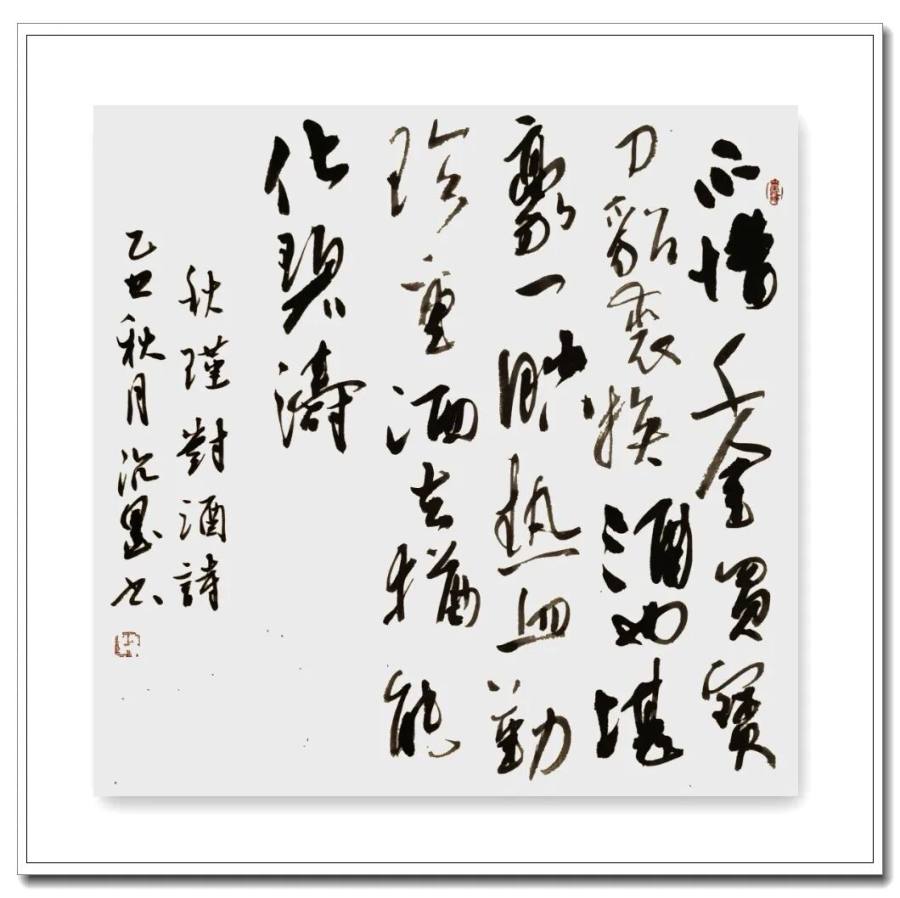 不惜千金買寶
刀貂裘换酒也堪
豪一腔热血勤
珍重洒去猶能
化碧濤
秋瑾對酒詩
乙丑秋月沉墨书